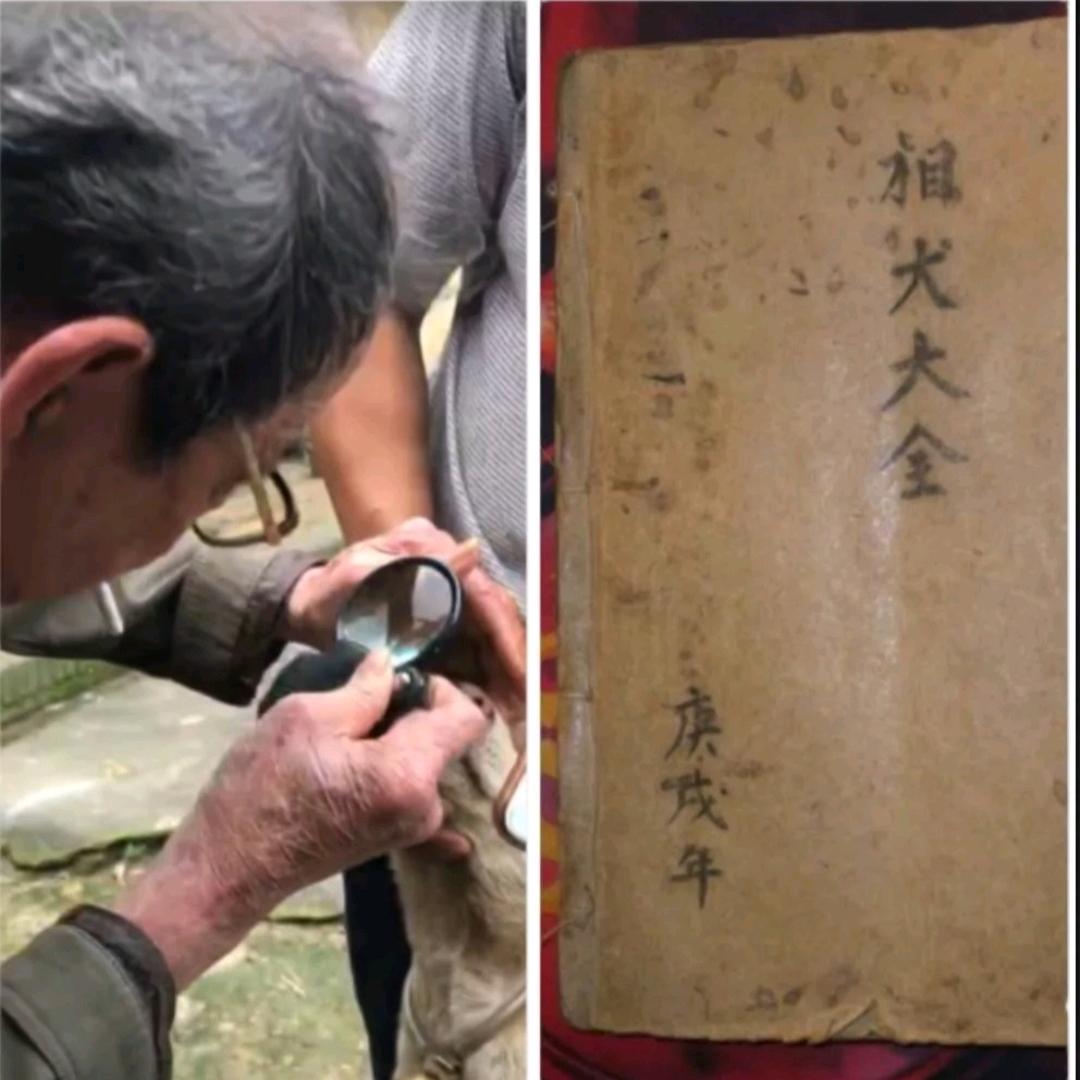 相犬大全
庚戌年